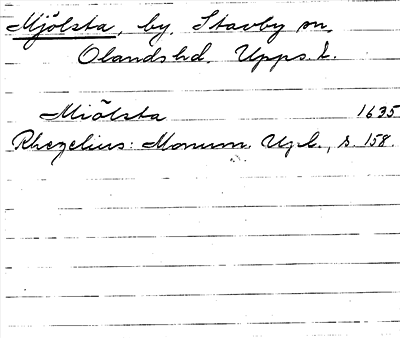 Mjölsta, by, Stavby sn,
Olandshd. Upps. l.
Miölsta 1635
Rhezelius: Monum. Upl., s. 158.